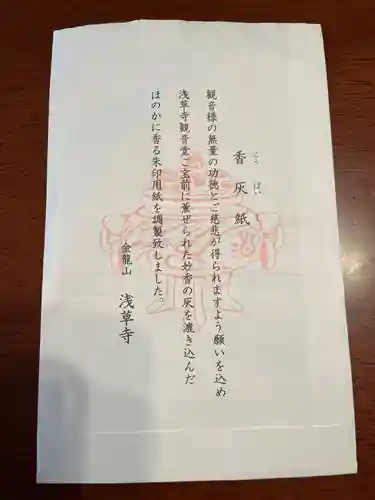 香灰紙
こう ばい し
観音様の無量の功徳とご慈悲が得られますよう願いを込め
浅草寺観音堂ご宝前に薫ぜられた妙香の灰を漉き込んだ
ほのかに香る朱印用紙を調製致しました。
金龍山 浅草寺